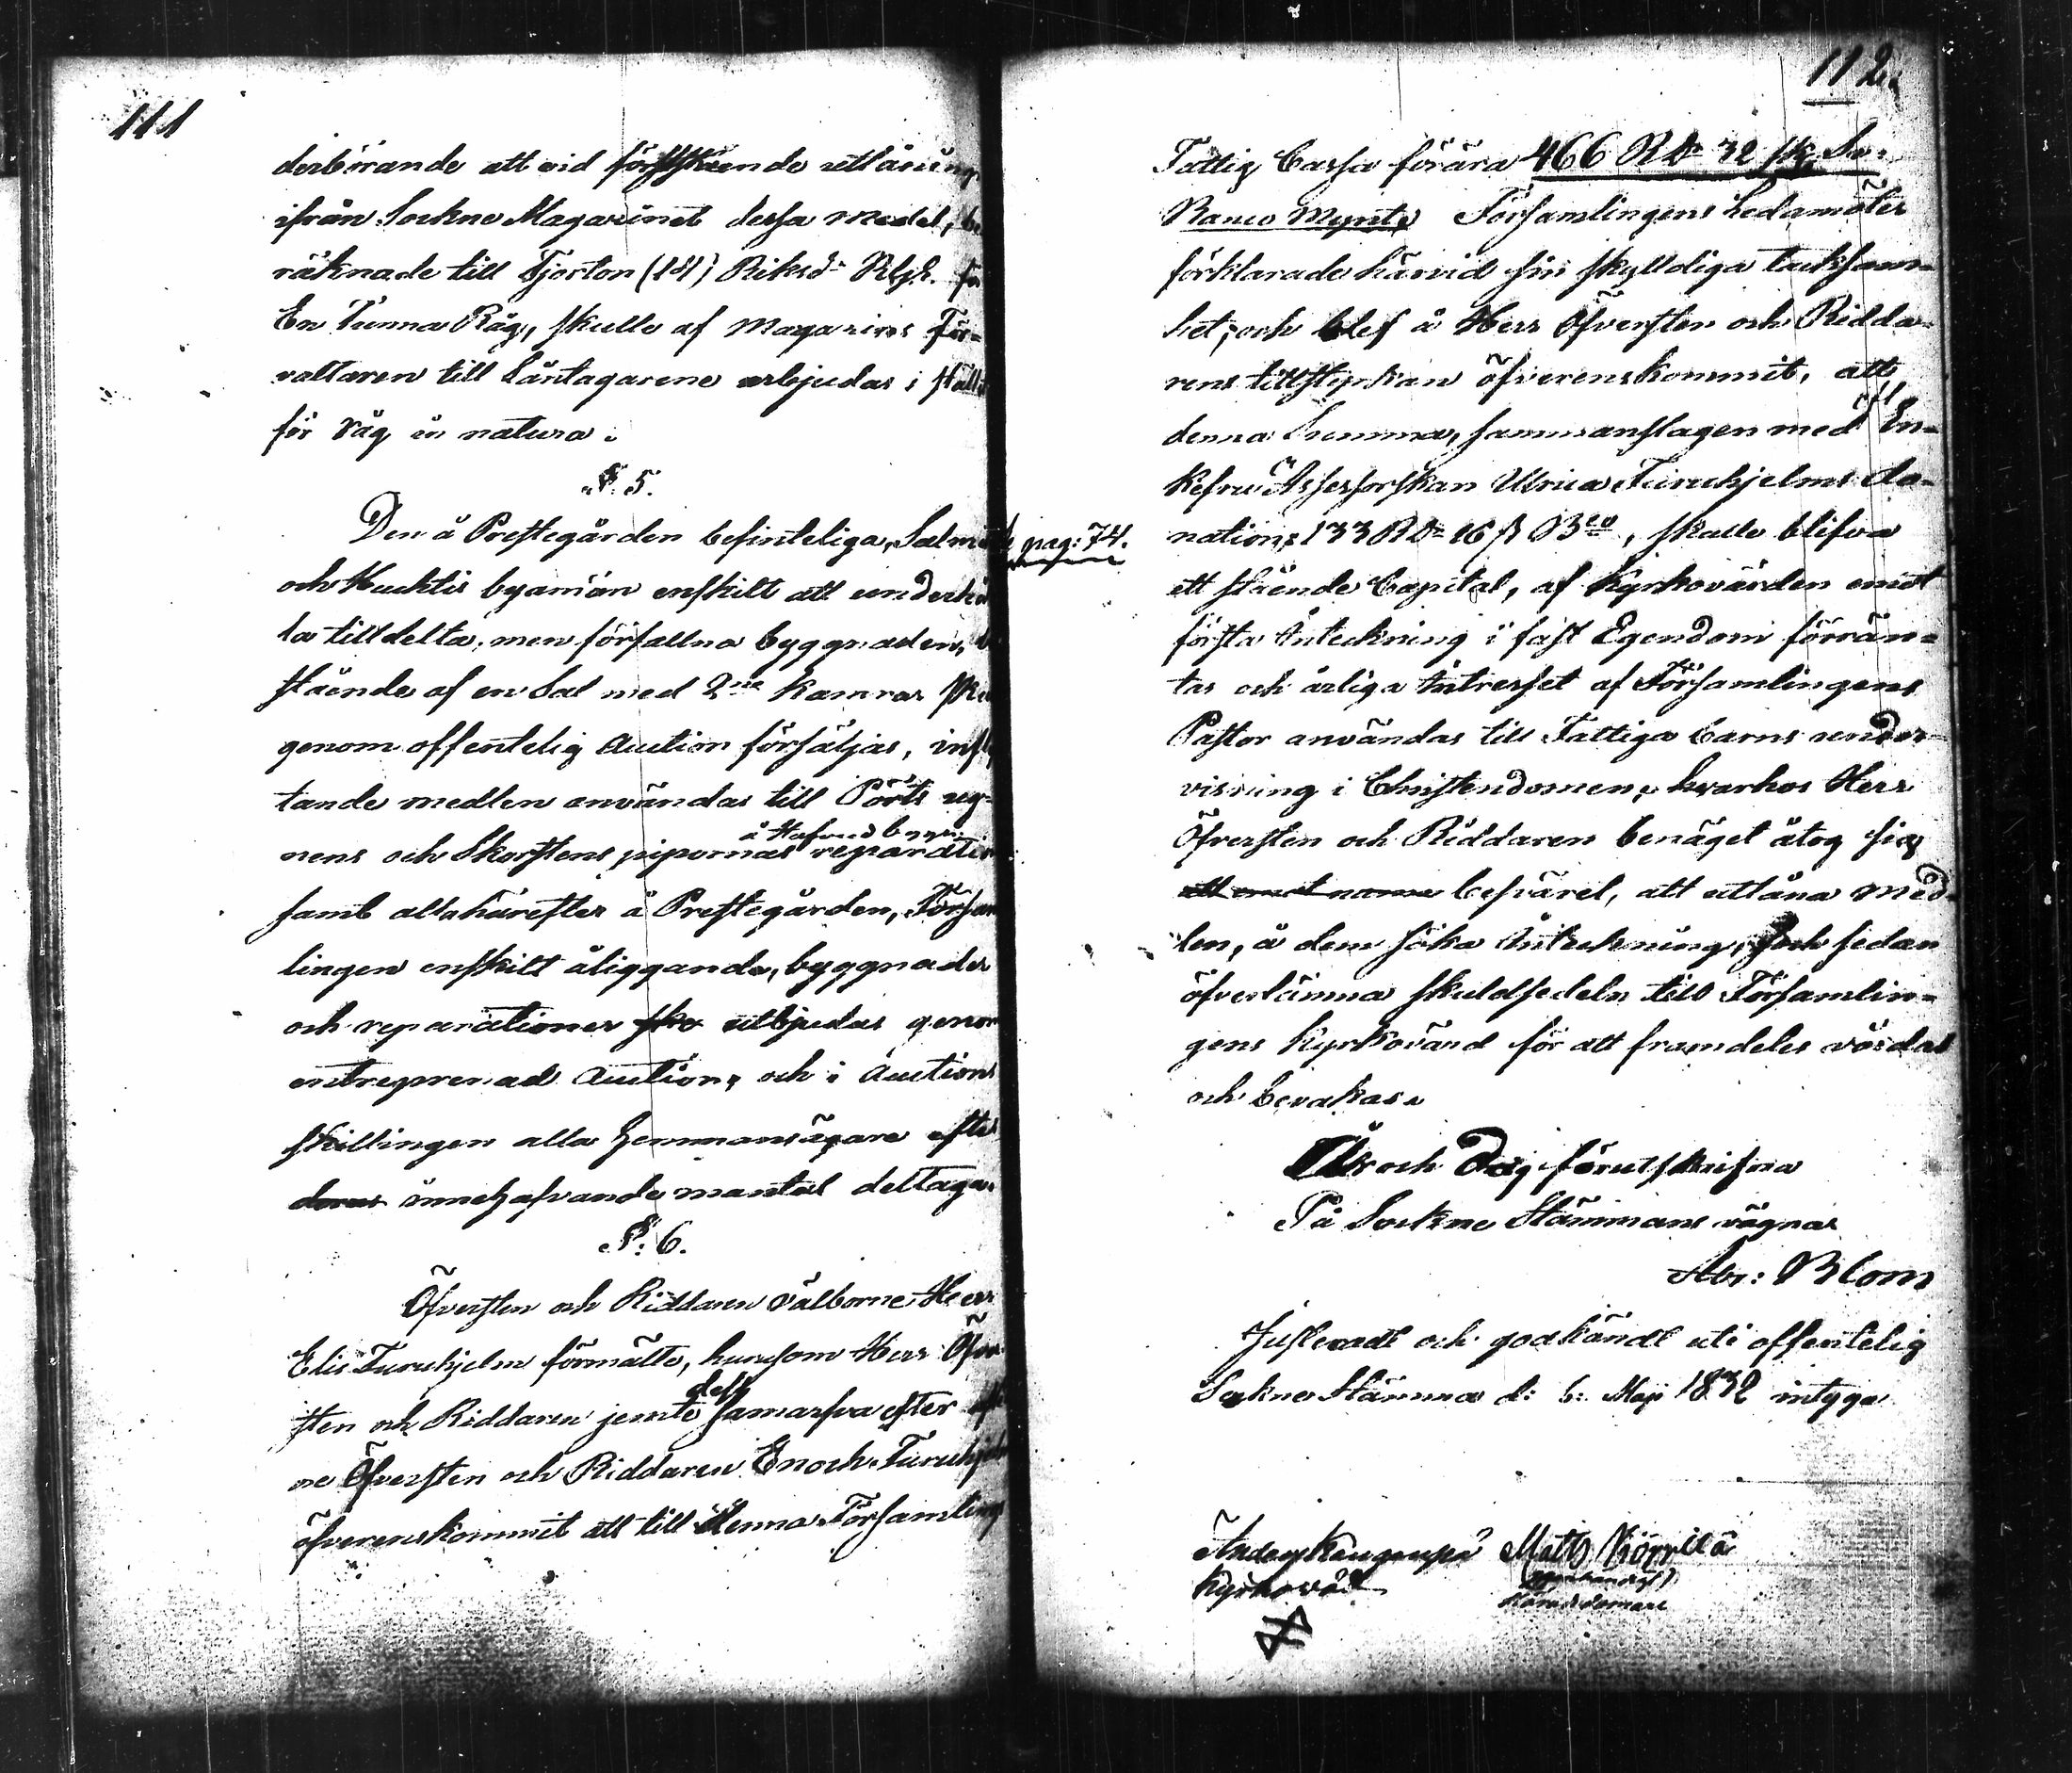 111
derbörande att vid förstskeende utlåning
ifrån Sockne Magazinet dessa medel, be
räknade till Fjorton (14) Riksdr Rgs. för
En Tunna Råg, skulle af magazins För-
valtaren till Låntagarene erbjudas i ställe
för Råg in natura.
§. 5.
Den å Prestegården befinteliga, Salmis
och Huuktis byamän enskilt att underhål
la tilldelta, men förfallna byggnaden, be
stående af en Sal med 2ne kamrar ska
genom offentelig Auction försäljas, influ
tande medlen användas till Pörts ug-
nens och Skorstens pipornas reparation
å Hufvudbyggn:
samt alla härefter å Prestegården, Försam
lingen enskilt åliggande, byggnader
och reparationer ske utbjudas genom
entreprenad Auction, och i Auctions
skillingen alla hemmansägare efter
deras innehafvande mantal deltaga.
§. 6.
Öfversten och Riddaren välborne Herr
Elis Furuhjelm förmälte, hurusom Herr Öfver
sten och Riddaren jemte dess samarfva efter afl
ne Öfversten och Riddaren Enoch Furuhjelm
öfverenskommit att till denna Församlings
112.
Fattig Cassa förära 466 RD 32 sk
Banco Mynt. Församlingens Ledamöter
förklarade härvid sin skylldiga tacksam-
het, och blef å Herr Öfversten och Ridda-
rens tillstyrkan öfverenskommit, att
denna Summa, sammanslagen med En-
kefru Assessorskan Ulrica Furuhjelms do-
pag: 74.
nation, 133 RD 16 s Bco, skulle blifva
ett stående Capital, af Kyrkovärden emot
första Inteckning i fast Egendom förrän-
tas och årliga Intresset af Församlingens
Pastor användas till Fattiga barns under-
visning i Christendomen, hvarhos Herr
Öfversten och Riddaren benäget åtog sig
besväret, att utlåna med-
len, å dem söka Inteckning, och sedan
öfverlämna skuldsedeln till Församlin-
gens Kyrkovärd för att framdeles vårdas
och bevakas.
År och Dag förutskrifna
På Sockne Stämmans vägnar
Abr: Blom
Justeradt och godkändt uti offentelig
Sockne Stämma d: 6: Maji 1832 intyga
Kyrkovärd
Matts
Häradsdomare